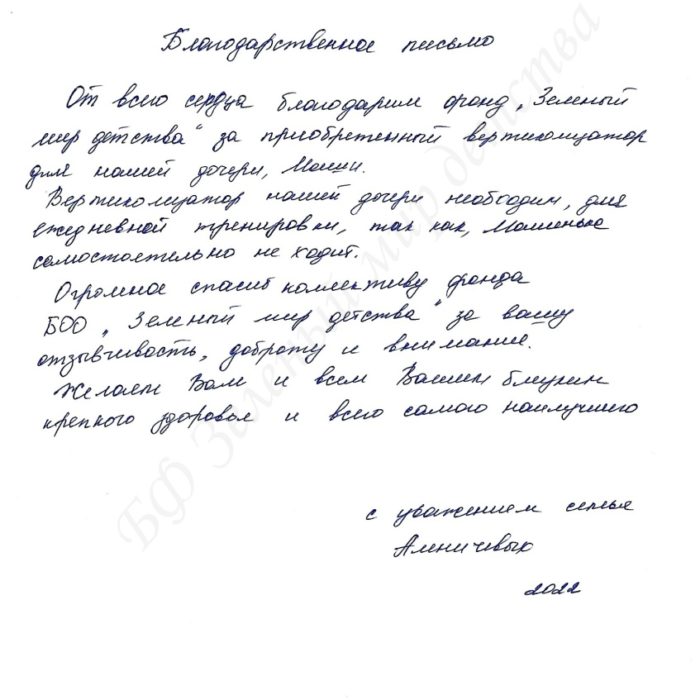 Благодарственное письмо
От всего сердца благодарим фонд „Зеленый
мир детства“ за приобретенный вертикализатор
для нашей дочери, Маши.
Вертикализатор нашей дочери необходим, для
ежедневной тренировки, так как, Машенька
самостоятельно не ходит.
Огромное спасиб коллективу фонда
БОО „Зеленый мир детства“ за вашу
отзывчивость, доброту и внимание.
Желаем Вам и всем Вашим близким
крепкого здоровья и всего самого наилучшего
с уважением семья
2022
БФ Зеленый мир детства